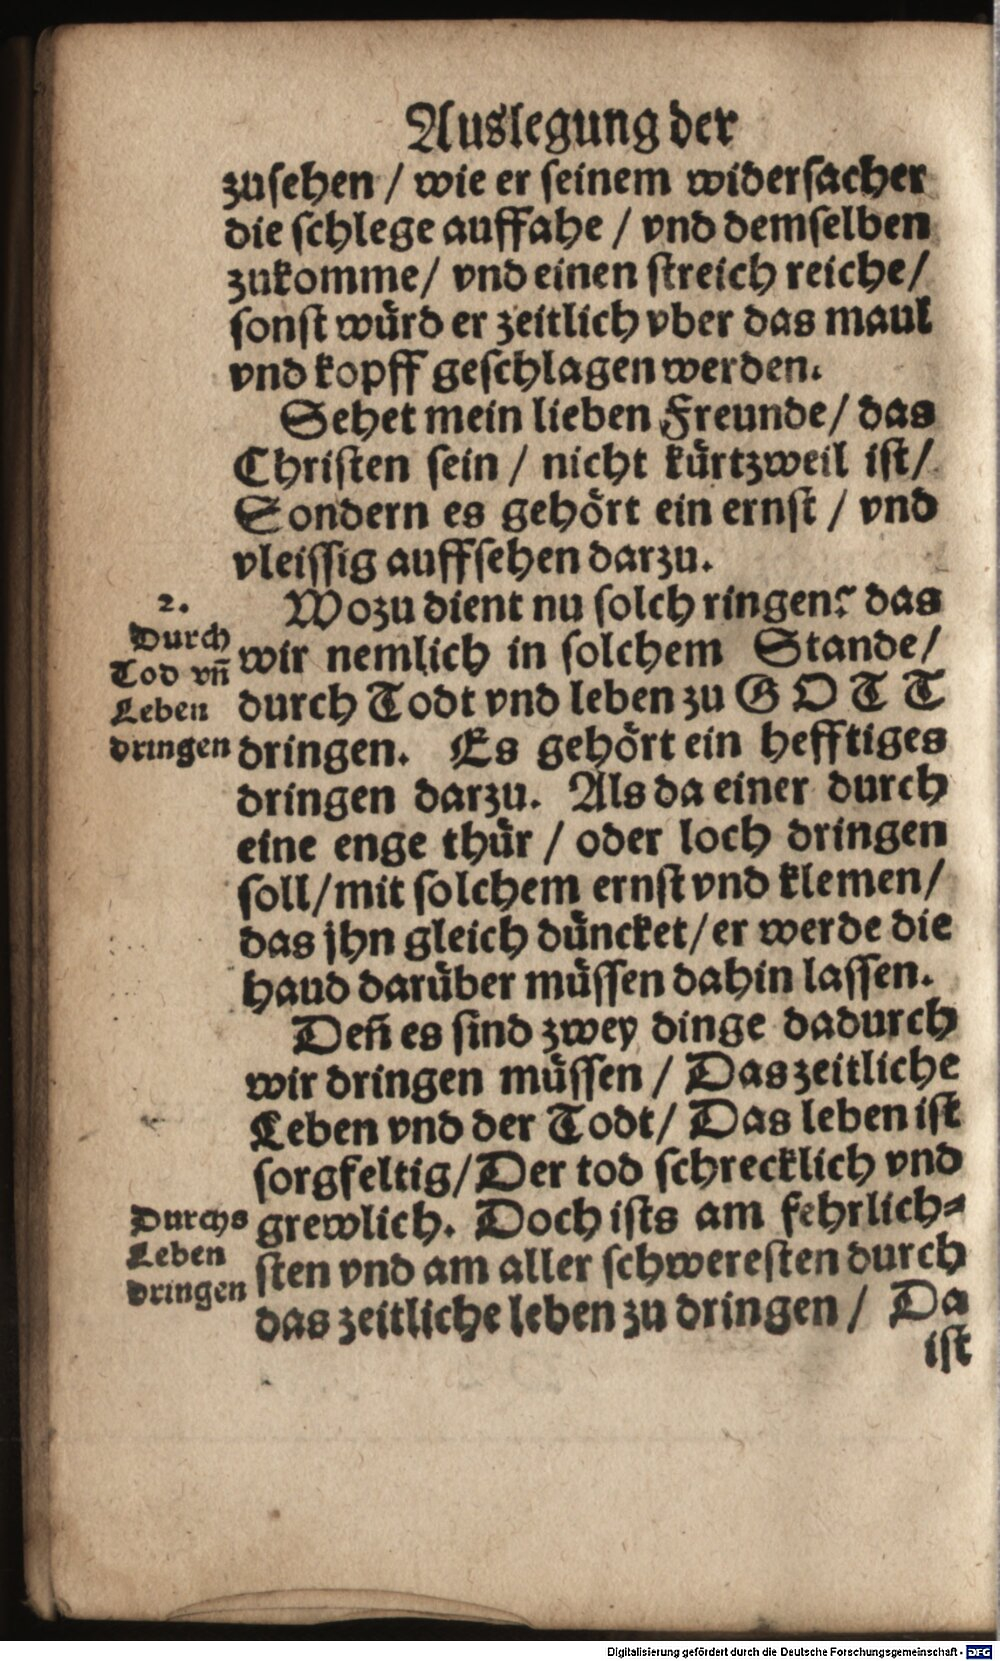 Auslegung der
zusehen / wie er seinem widersacher
die schlege auffahe / vnd demselben
zukomme / vnd einen streich reiche /
sonst wuͤrd er zeitlich vber das maul
vnd kopff geschlagen werden.
Sehet mein lieben Freunde / das
Christen sein / nicht kuͤrtzweil ist /
Sondern es gehoͤrt ein ernst / vnd
vleissig auffsehen darzu.
2.
Durch
Tod vñ
Leben
dringen
Wozu dient nu solch ringen? das
wir nemlich in solchem Stande /
durch Todt vnd leben zu GOTT
dringen. Es gehoͤrt ein hefftiges
dringen darzu. Als da einer durch
eine enge thuͤr / oder loch dringen
soll / mit solchem ernst vnd klemen /
das jhn gleich duͤncket / er werde die
haud daruͤber muͤssen dahin lassen.
Deñ es sind zwey dinge dadurch
wir dringen muͤssen / Das zeitliche
Leben vnd der Todt / Das leben ist
sorgfeltig / Der tod schrecklich vnd
Durchs
Leben
dringen
grewlich. Doch ists am fehrlich⸗
sten vnd am aller schweresten durch
das zeitliche leben zu dringen / Da
ist
Digitalisierung gefördert durch die Deutsche Forschungsgemeinschaft - DFG